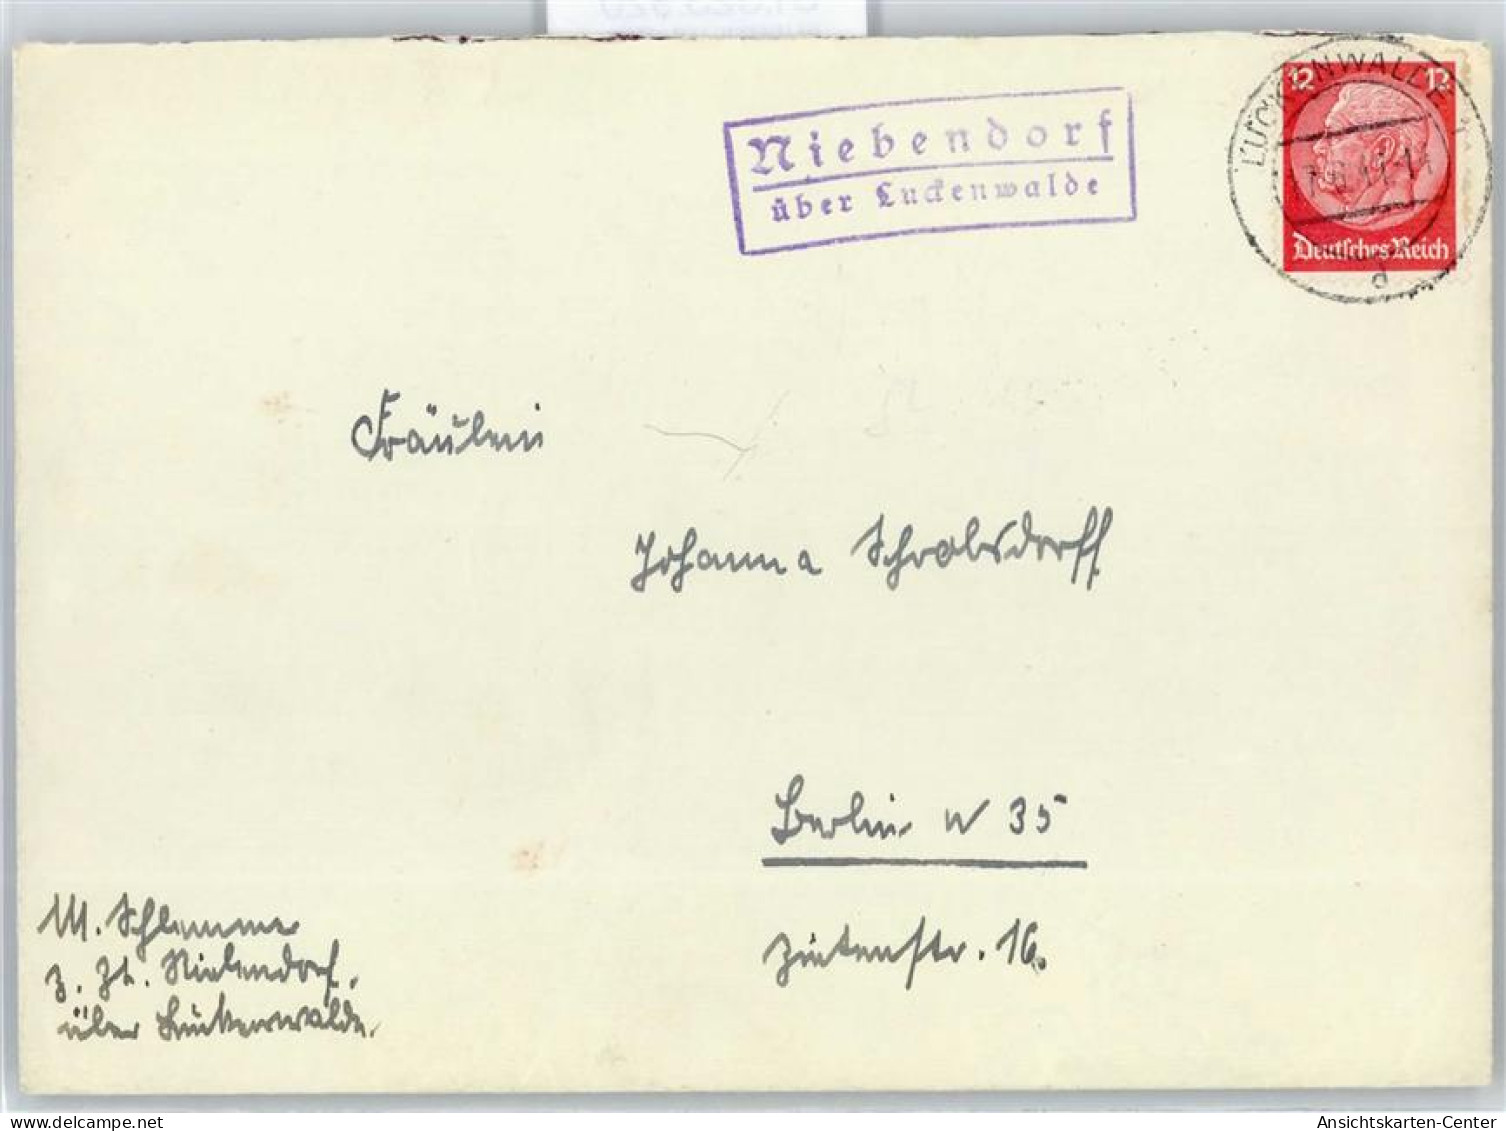 Niebendorf
über Luckenwalde
LUCKENWALDE
12 12
Deutsches Reich
d
Fräulein
Johanna Schrobsdorff
Berlin W 35
Zietenstr. 16.
M. Schlemmer
z. Zt. Niebendorf.
über Luckenwalde.
the-saleroom
delcampe.net
Ansichtskarten-Center